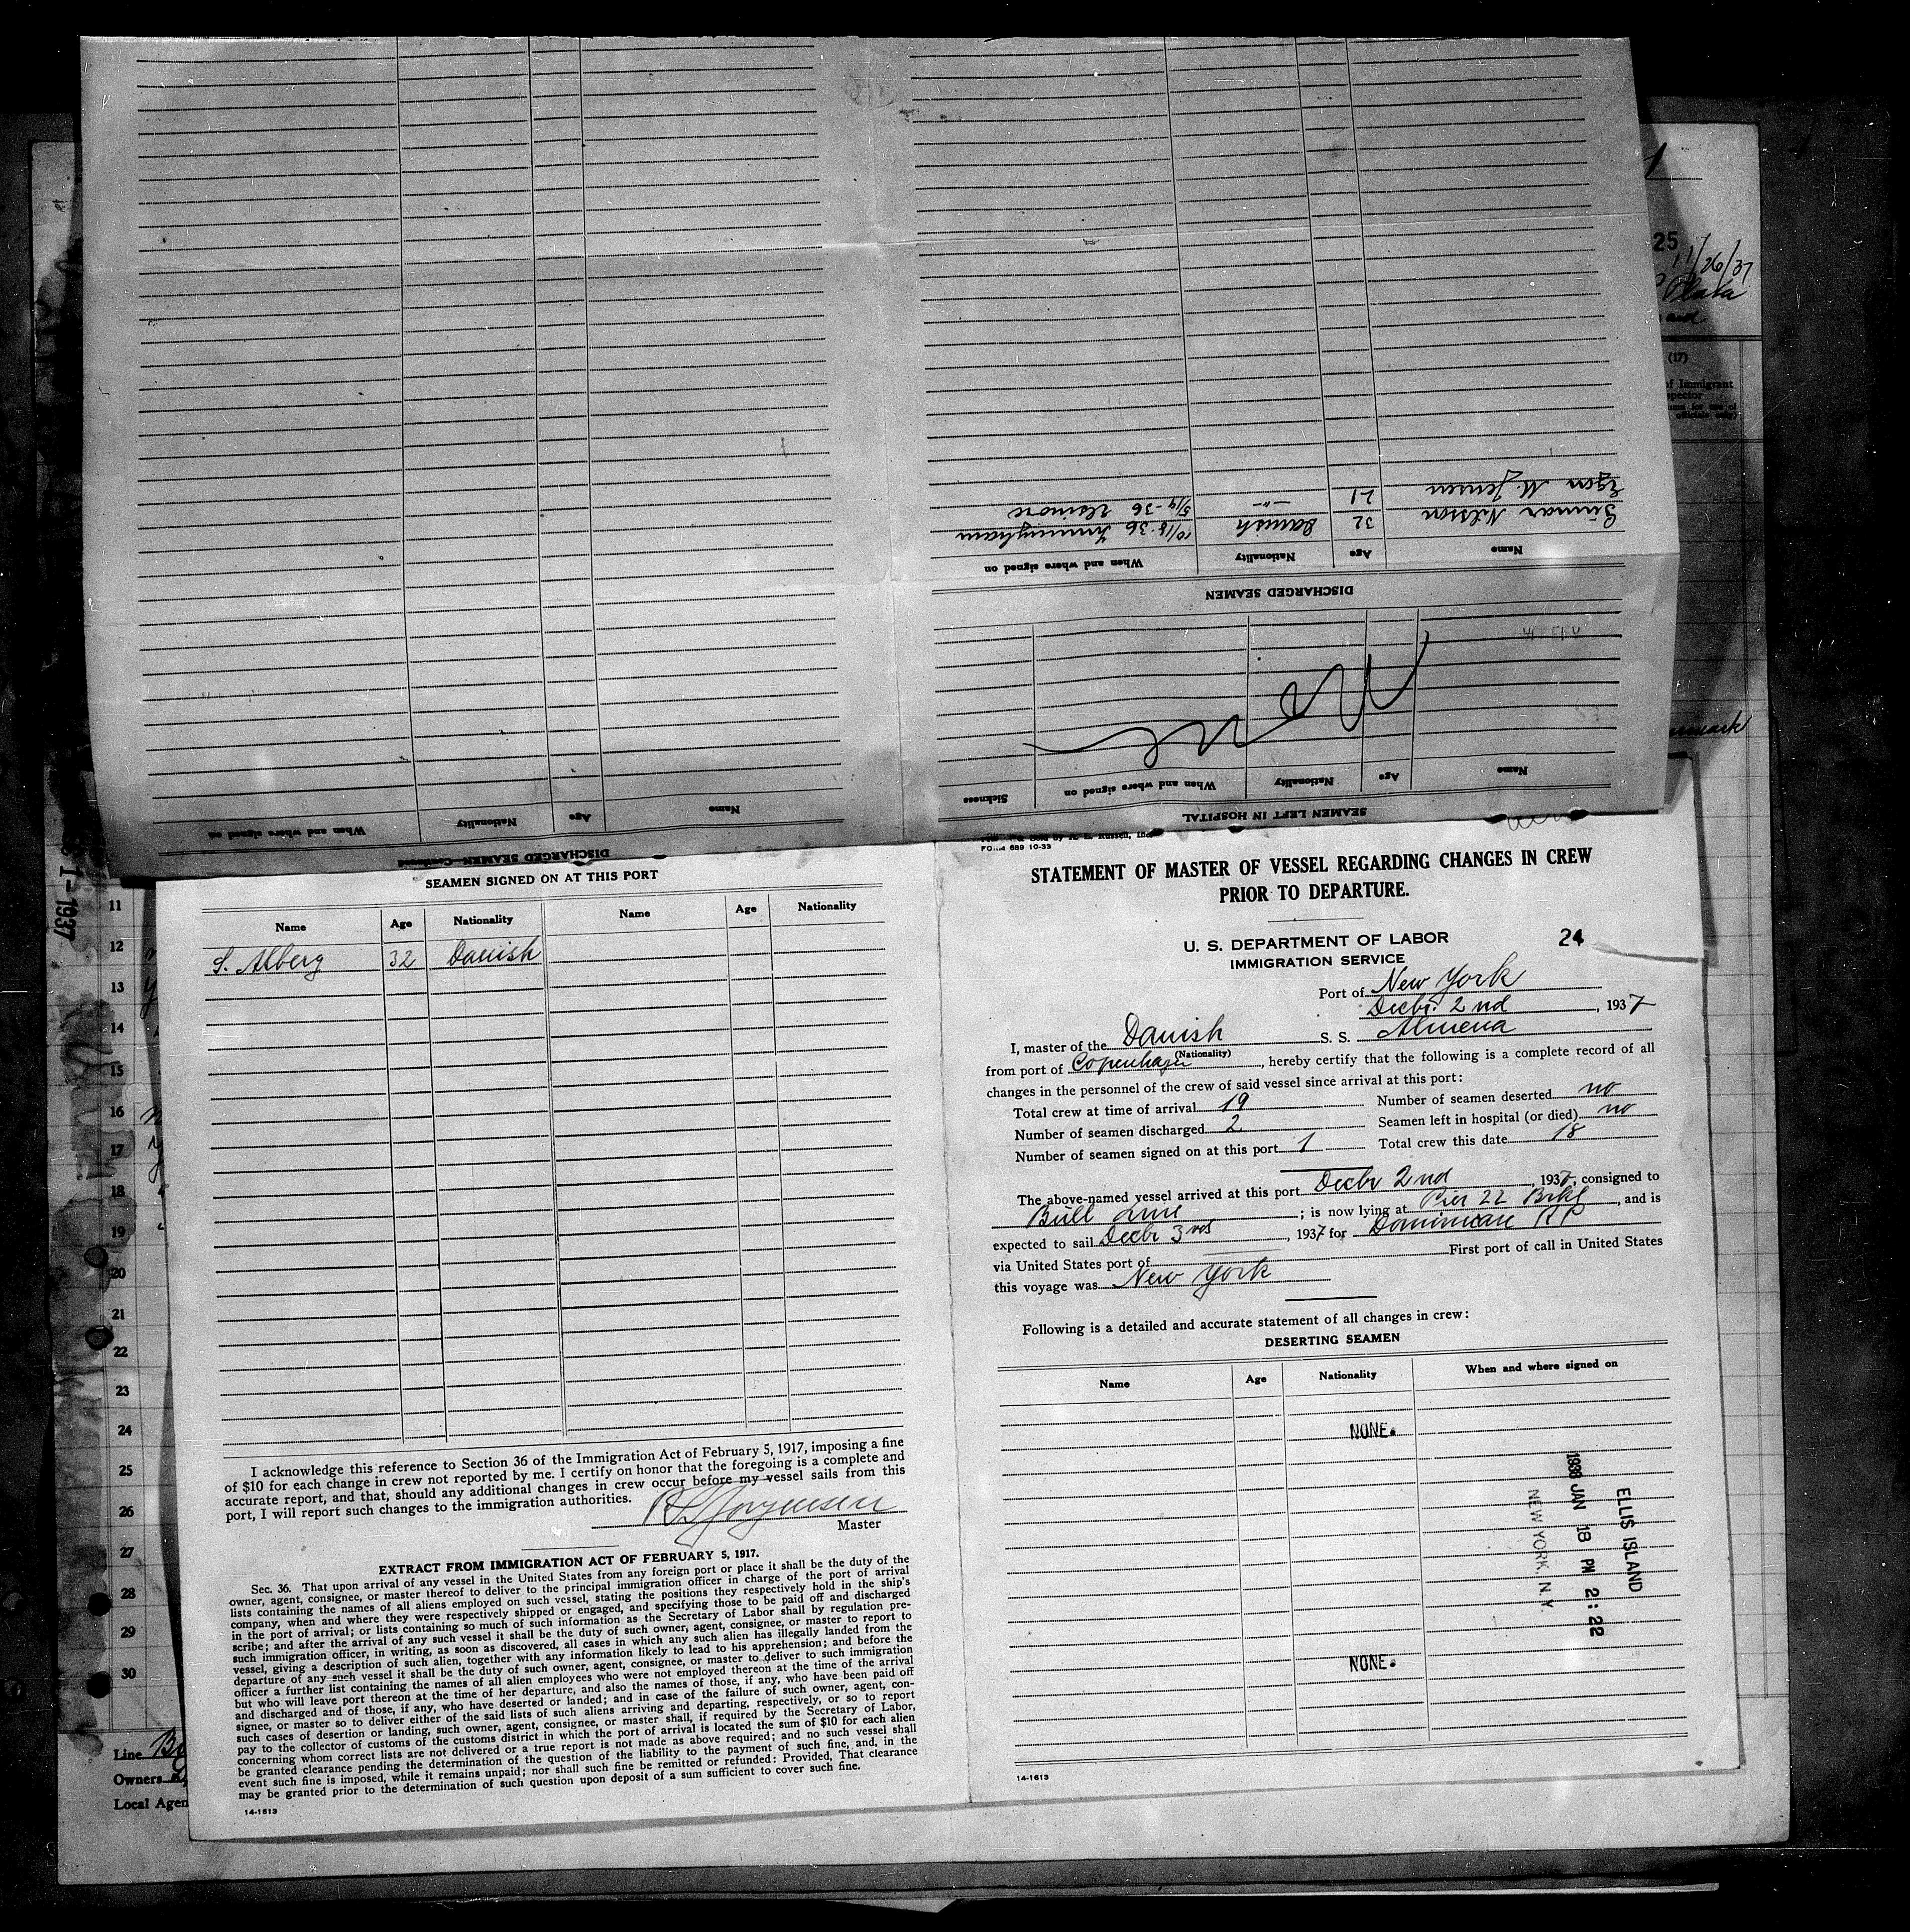 DISCHARGED SEAMEN—Continued
Name Age Nationality When and where signed on
SEAMEN LEFT IN HOSPITAL
Name Age Nationality When and where signed on Sickness
None
DISCHARGED SEAMEN
Name Age Nationality When and where signed on
Gunnar Nilsson 32 Danish 10/18-36 Immingham
Egon M. Jensen 21 -"- 5/19-36 Elsinore
25
11/26/37
Plata
and
(17)
of Immigrant
1-1937
11
12
13
14
15
16
17
18
19
20
21
22
23
24
25
26
27
28
29
30
Line
Owners
Local Agen
SEAMEN SIGNED ON AT THIS PORT
Name Age Nationality Name Age Nationality
S. Alberg 32 Danish
I acknowledge this reference to Section 36 of the Immigration Act of February 5, 1917, imposing a fine
of $10 for each change in crew not reported by me. I certify on honor that the foregoing is a complete and
accurate report, and that, should any additional changes in crew occur before my vessel sails from this
port, I will report such changes to the immigration authorities.
Jorgensen
Master
EXTRACT FROM IMMIGRATION ACT OF FEBRUARY 5, 1917.
Sec. 36. That upon arrival of any vessel in the United States from any foreign port or place it shall be the duty of the
owner, agent, consignee, or master thereof to deliver to the principal immigration officer in charge of the port of arrival
lists containing the names of all aliens employed on such vessel, stating the positions they respectively hold in the ship's
company, when and where they were respectively shipped or engaged, and specifying those to be paid off and discharged
in the port of arrival; or lists containing so much of such information as the Secretary of Labor shall by regulation pre-
scribe; and after the arrival of any such vessel it shall be the duty of such owner, agent, consignee, or master to report to
such immigration officer, in writing, as soon as discovered, all cases in which any such alien has illegally landed from the
vessel, giving a description of such alien, together with any information likely to lead to his apprehension; and before the
departure of any such vessel it shall be the duty of such owner, agent, consignee, or master to deliver to such immigration
officer a further list containing the names of all alien employees who were not employed thereon at the time of the arrival
but who will leave port thereon at the time of her departure, and also the names of those, if any, who have been paid off
and discharged and of those, if any, who have deserted or landed; and in case of the failure of such owner, agent, con-
signee, or master so to deliver either of the said lists of such aliens arriving and departing, respectively, or so to report
such cases of desertion or landing, such owner, agent, consignee, or master shall, if required by the Secretary of Labor,
pay to the collector of customs of the customs district in which the port of arrival is located the sum of $10 for each alien
concerning whom correct lists are not delivered or a true report is not made as above required; and no such vessel shall
be granted clearance pending the determination of the question of the liability to the payment of such fine, and, in the
event such fine is imposed, while it remains unpaid; nor shall such fine be remitted or refunded: Provided, That clearance
may be granted prior to the determination of such question upon deposit of a sum sufficient to cover such fine.
14-1613
FORM 689 10-33
STATEMENT OF MASTER OF VESSEL REGARDING CHANGES IN CREW
PRIOR TO DEPARTURE.
U. S. DEPARTMENT OF LABOR
IMMIGRATION SERVICE
24
Port of New York
Decbr. 2nd, 1937
I, master of the Danish S. S. Almena
(Nationality)
from port of Copenhagen, hereby certify that the following is a complete record of all
changes in the personnel of the crew of said vessel since arrival at this port:
Total crew at time of arrival 19 Number of seamen deserted no
Number of seamen discharged 2 Seamen left in hospital (or died) no
Number of seamen signed on at this port 1 Total crew this date 18
The above-named vessel arrived at this port Decbr 2nd, 1937, consigned to
Bull Line; is now lying at Pier 22 Bkl, and is
expected to sail Decbr 3rd, 1937 for Dominican RP
via United States port of First port of call in United States
this voyage was New York
Following is a detailed and accurate statement of all changes in crew:
DESERTING SEAMEN
Name Age Nationality When and where signed on
NONE.
NONE.
ELLIS ISLAND
1938 JAN 18 PM 2:22
NEW YORK, N.Y.
14-1613